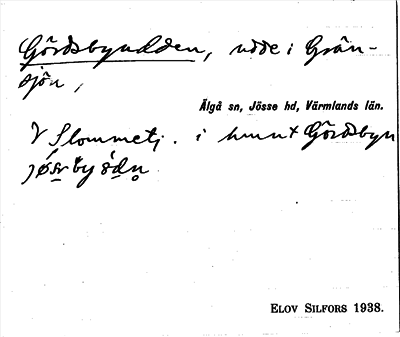 Gördsbyudden, udde i Grän-
sjön,
Älgå sn, Jösse hd, Värmlands län.
V Slommetj. i hmnt Gördsbyn
ELOV SILFORS 1938.